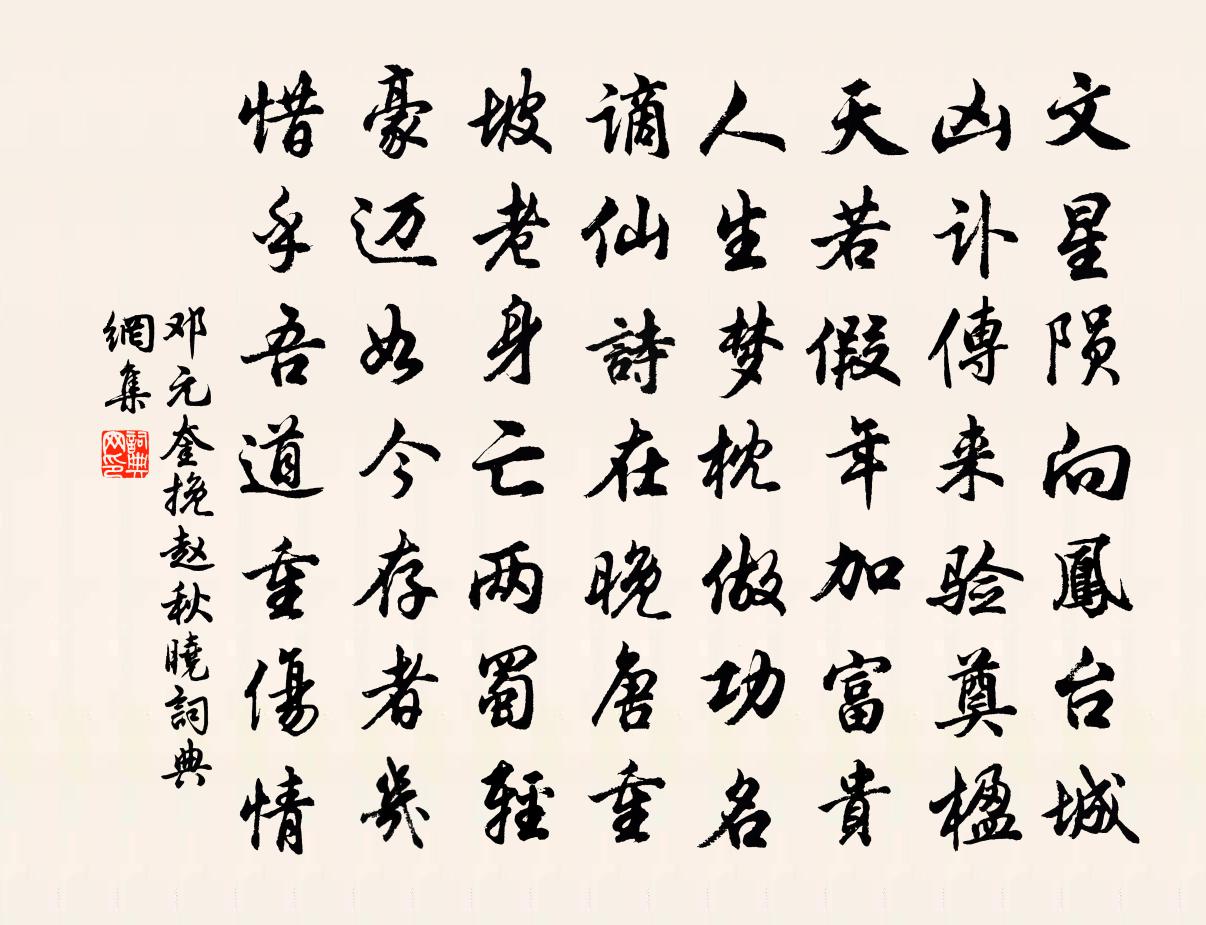 文星陨向鳳台城
凶讣傳来验奠楹
天若假年加富貴
人生梦枕做功名
谪仙詩在晚唐重
坡老身亡两蜀輕
豪迈如今存者幾
惜乎吾道重傷情
邓元奎挽赵秋曉詞典
網集
詞典
网印